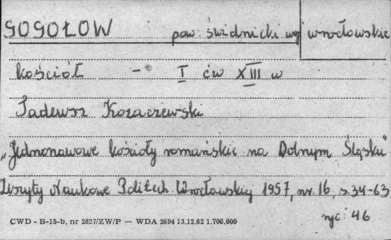 GOGOŁOW pow. świdnicki woj wrocławskie
kościół - I ćw XIII w
Tadeusz Kozaczewski
"Jednonawowe kościoły romańskie na Dolnym Śląsku"
Zeszyty Naukowe Politech. Wrocławskiej 1957, nr. 16, s. 34-63
ryc: 46
CWD - B-15-b, nr 2827/ZW/P — WDA 2694 13.12.62 1.700.000